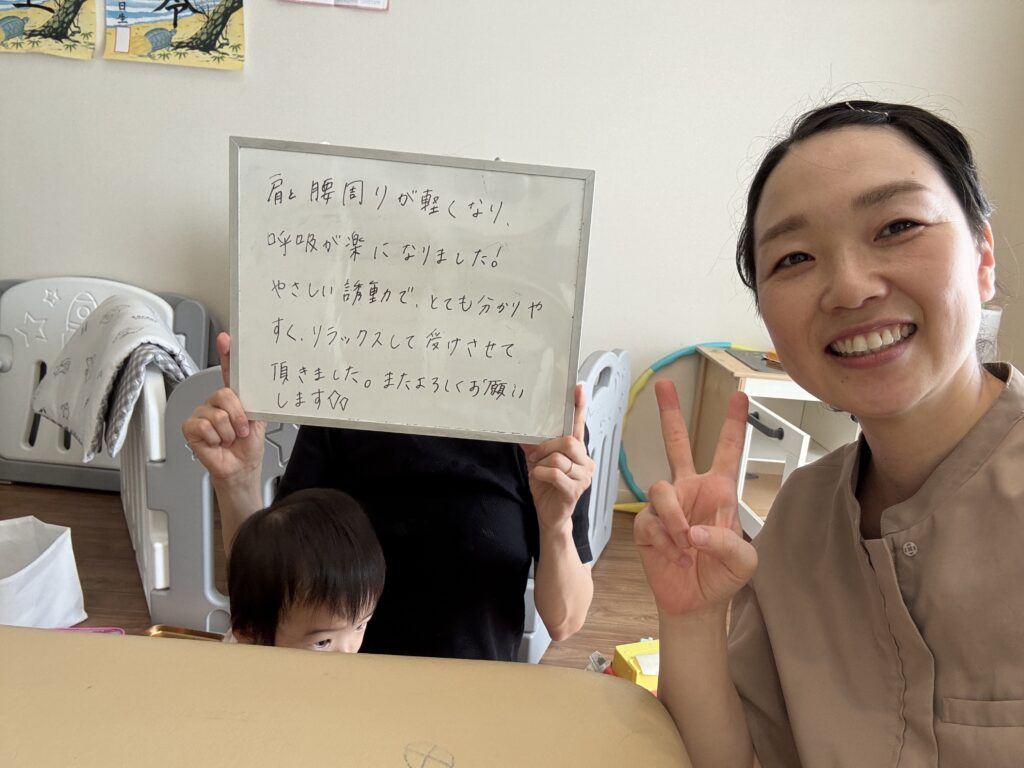 日生
命
肩と腰周りが軽くなり、
呼吸が楽になりました!
やさしい誘動で、とても分かりや
すく、リラックスして受けさせて
頂きました。またよろしくお願い
します◇◇